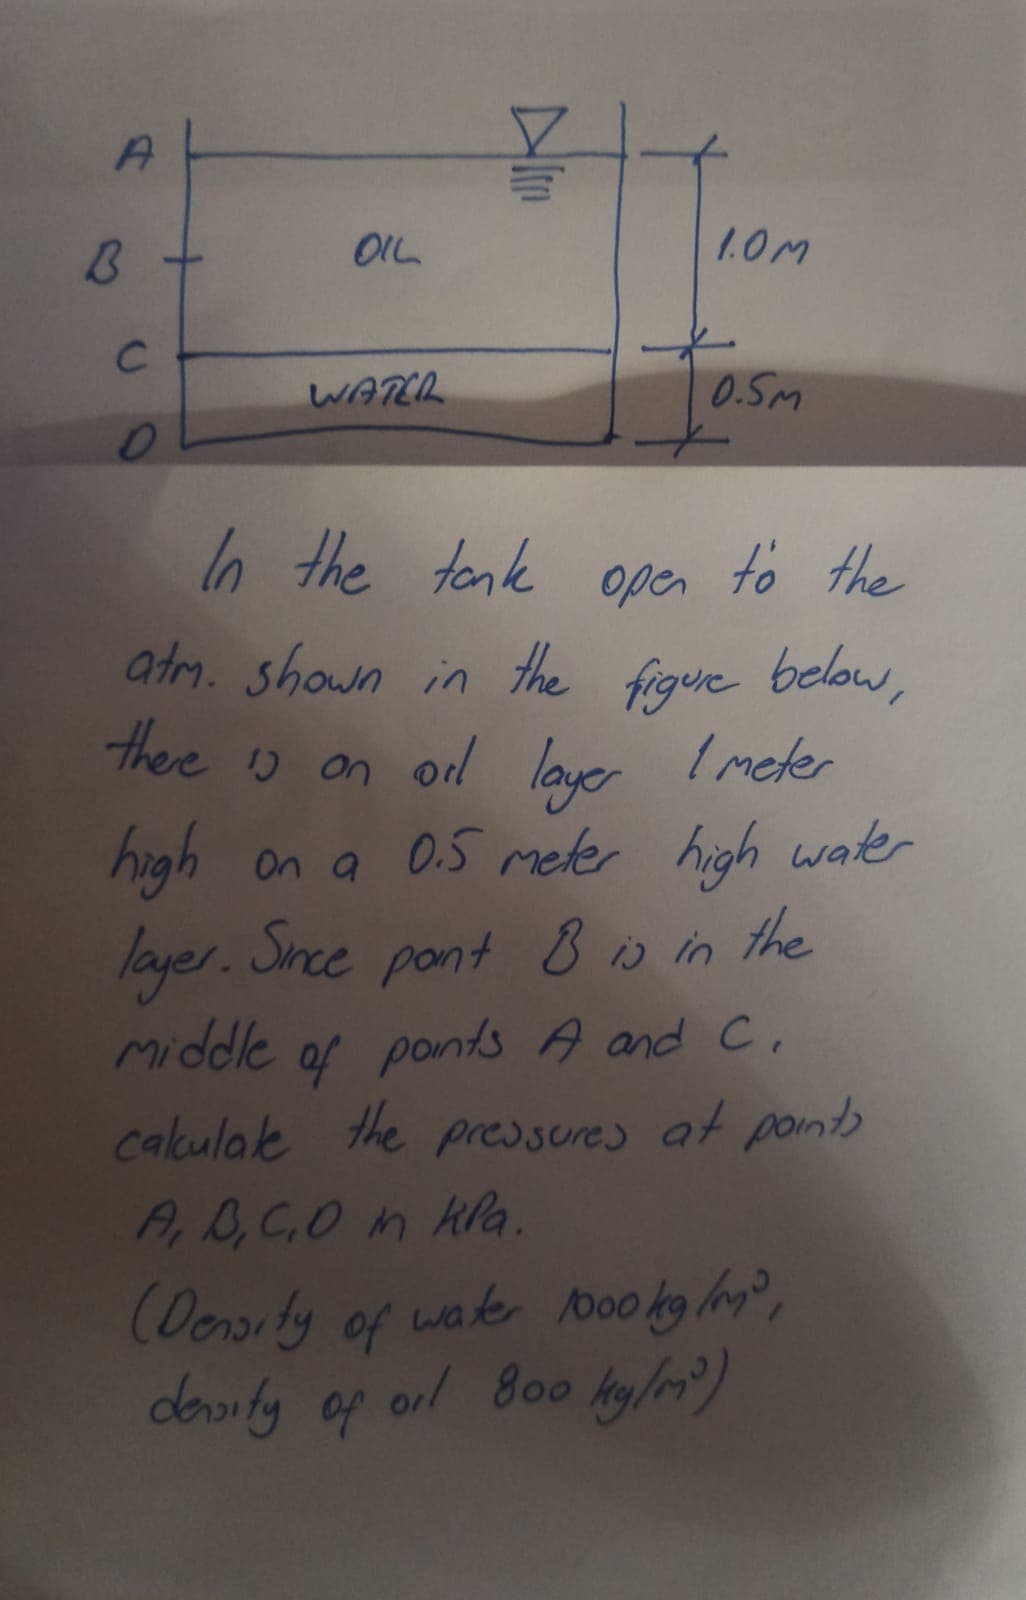 A
B
OIL
1.0M
C
WATER
0.5M
D
In the tank open to the
atm. shown in the figure below,
there is an oil layer 1 meter
high on a 0.5 meter high water
layer. Since point B is in the
middle of points A and C,
calculate the pressures at points
A, B, C, D in kPa.
(Density of water 1000 kg/m³,
density of oil 800 kg/m³)